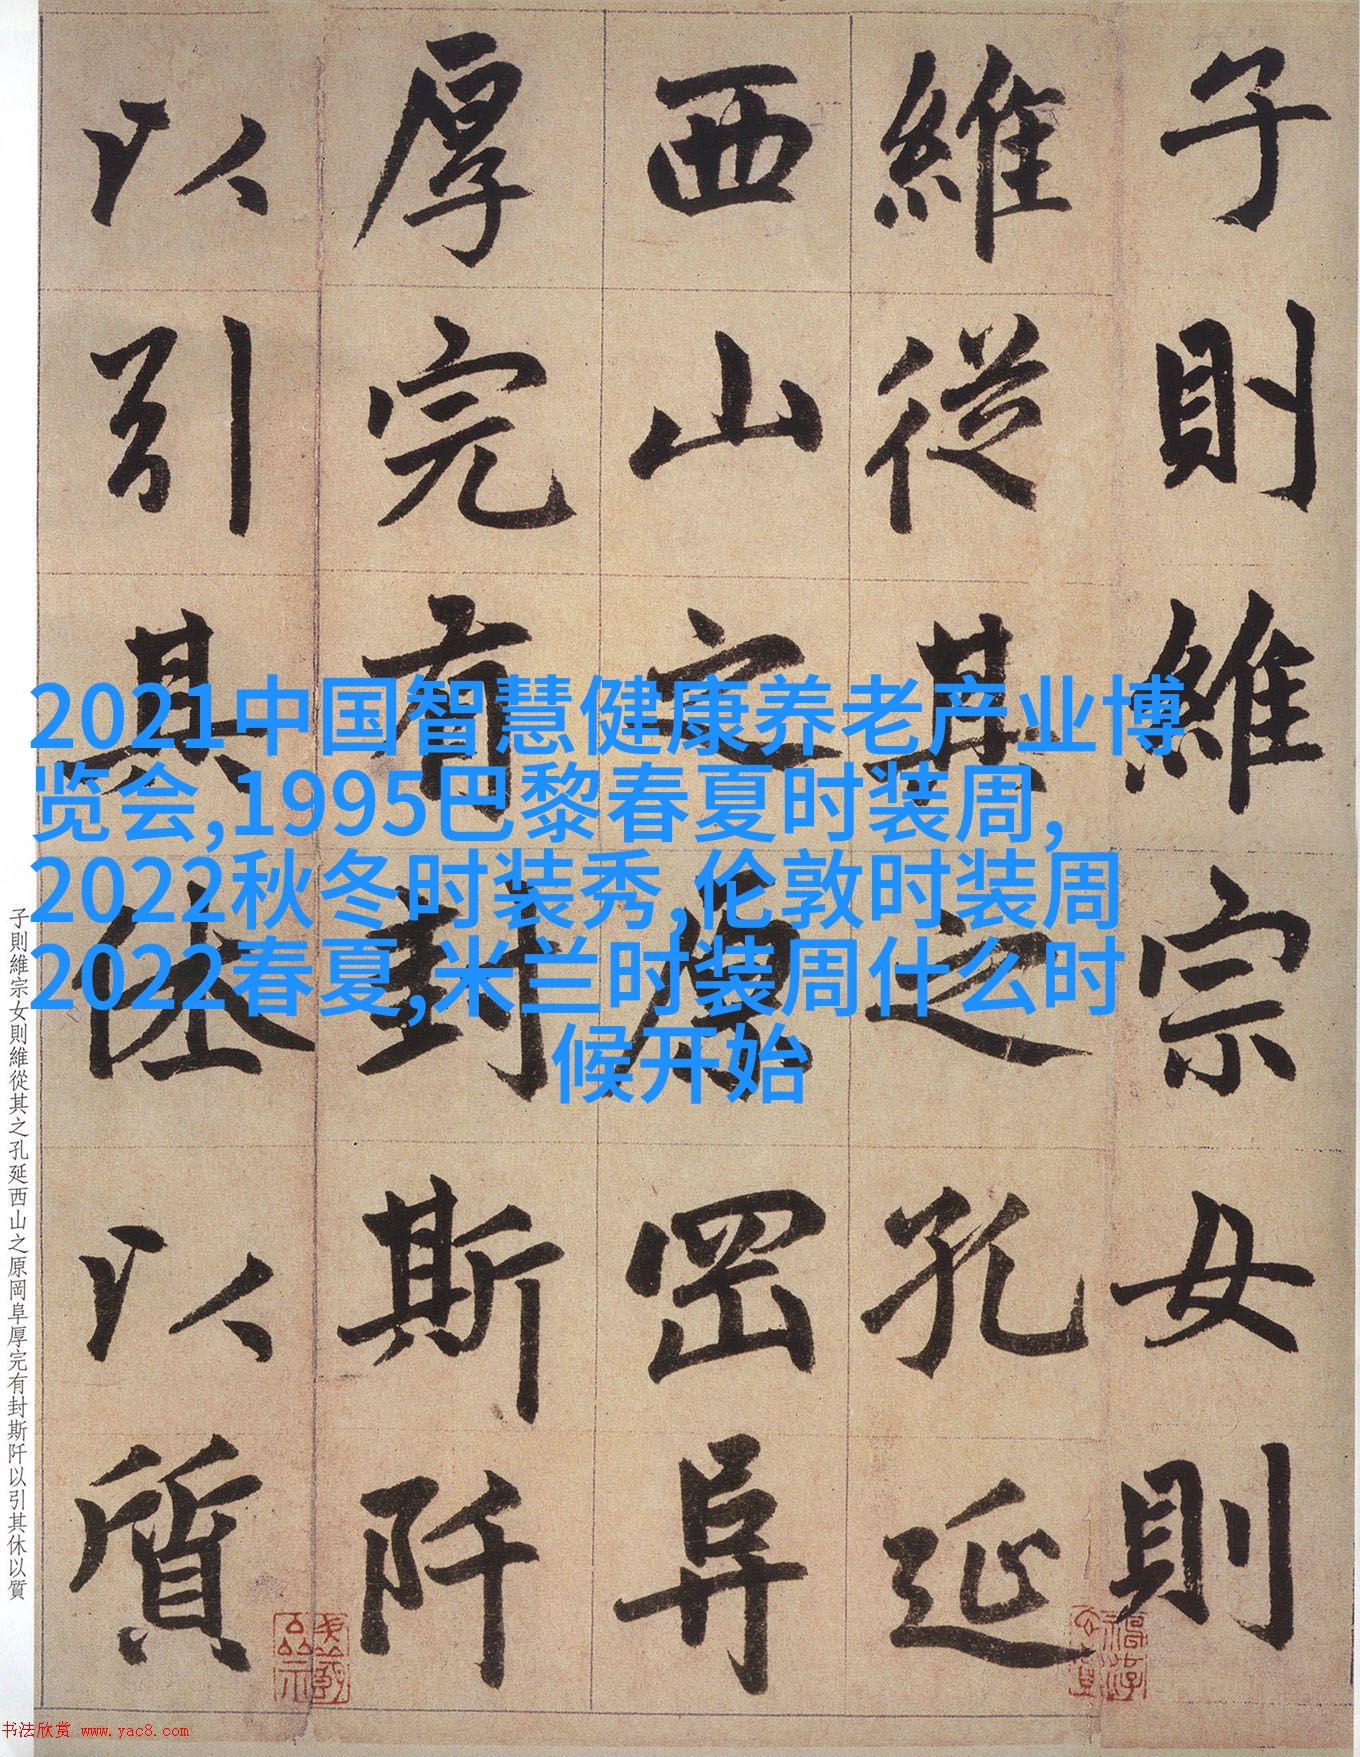 子則維宗女則
維從其之孔延
西山之原岡阜
厚完有封斯阡
以引其休以質
2021中国智慧健康养老产业博
览会,1995巴黎春夏时装周,
2022秋冬时装秀,伦敦时装周
2022春夏,米兰时装周什么时
候开始
子則維宗女則維從其之孔延西山之原岡阜厚完有封斯阡以引其休以質
书法欣赏 www.yac8.com